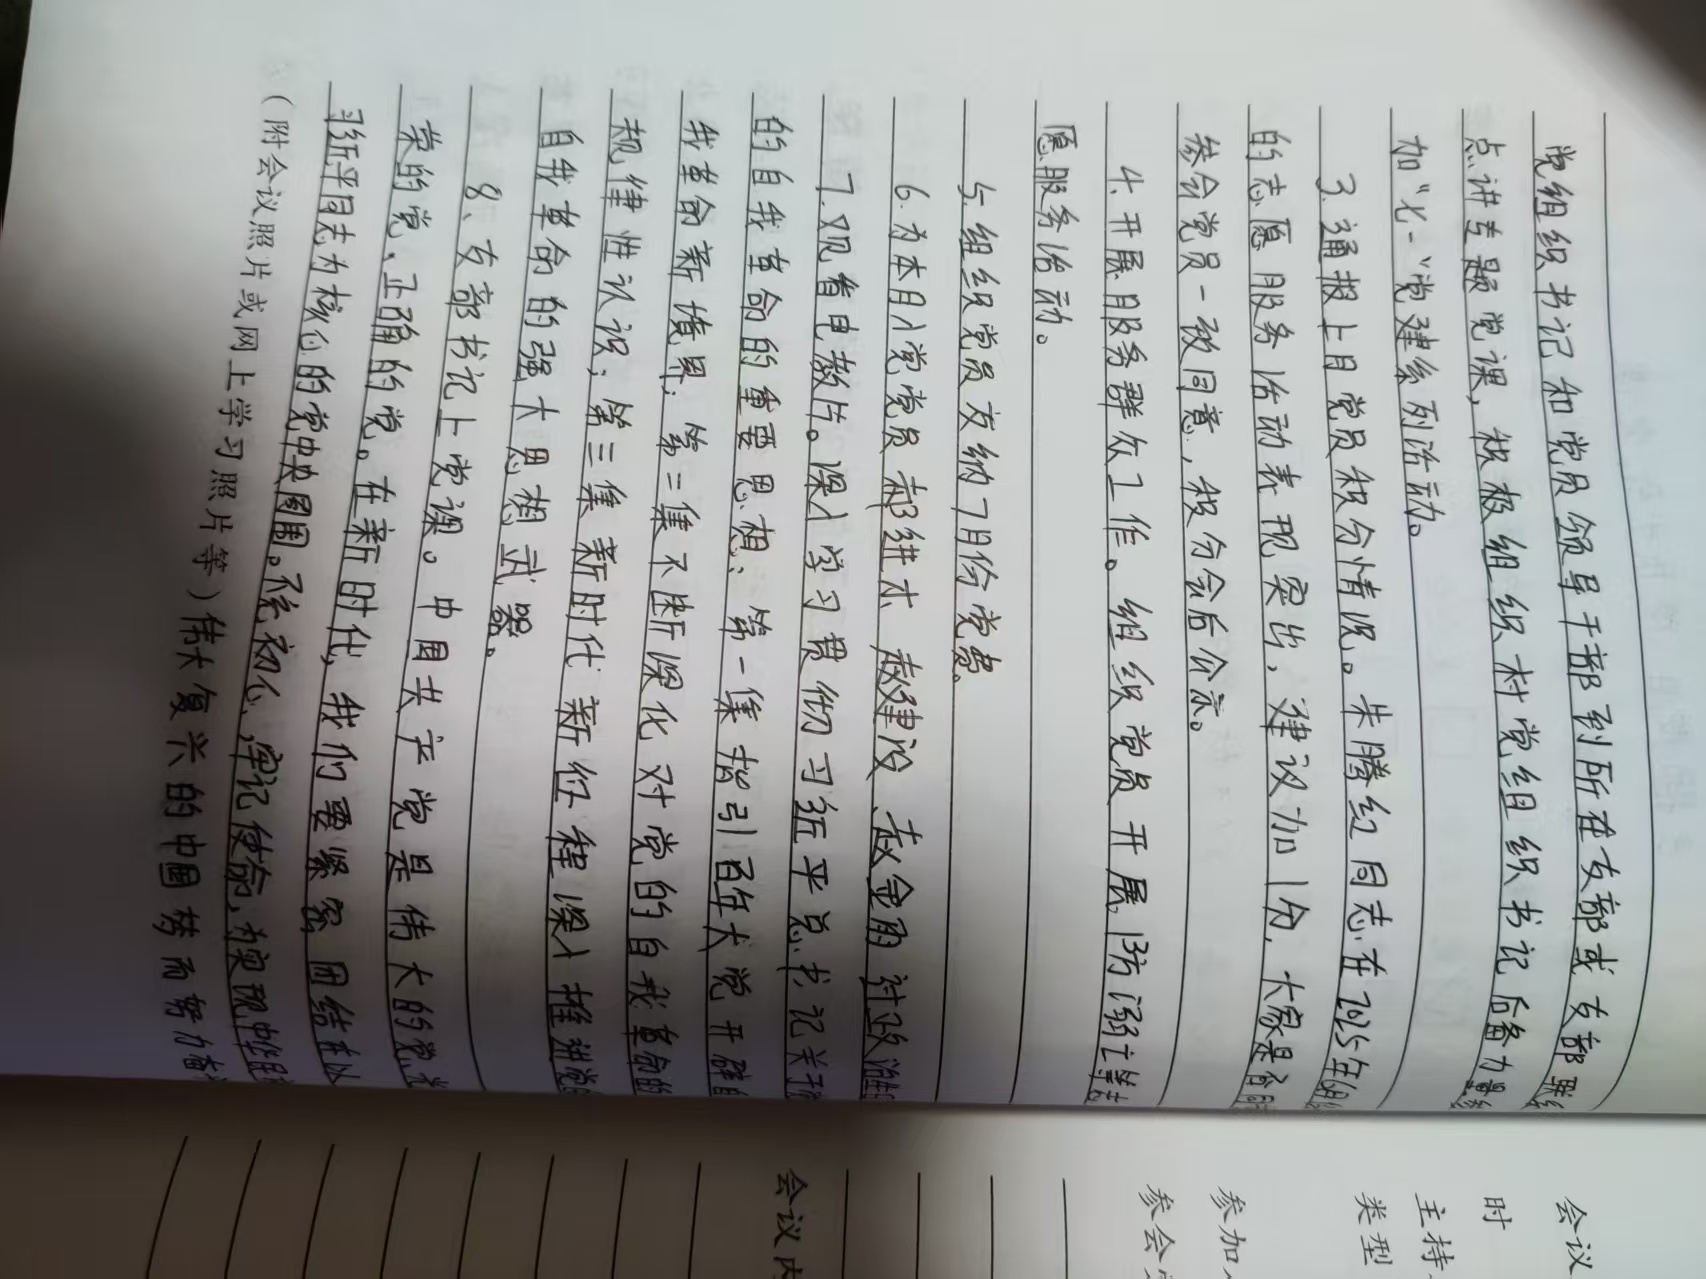 党组织书记和党员领导干部到所在支部或支部联系
点讲专题党课，积极组织村党组织书记后备力量参
加“七一”党建系列活动。
3.通报上月党员积分情况。朱腾红同志在2025年组织
的志愿服务活动表现突出，建议加1分，大家是否同
参会党员一致同意，积分会后公示。
4.开展服务群众工作。组织党员开展防溺亡等志
愿服务活动。
5.组织党员交纳7月份党费。
6.为本月入党党员郝进才、赵建设、赵金雨过政治生
7.观看电教片。深入学习贯彻习近平总书记关于党
的自我革命的重要思想：第一集 指引百年大党开辟自
我革命新境界；第二集 不断深化对党的自我革命的
规律性认识；第三集 新时代新征程深入推进党的
自我革命的强大思想武器。
8、支部书记上党课。中国共产党是伟大的党、光
荣的党、正确的党。在新时代，我们要紧密团结在以
习近平同志为核心的党中央周围。不忘初心、牢记使命，为实现中华民
（附会议照片或网上学习照片等）伟大复兴的中国梦而努力奋
会议
时
主持
类型
参加
参会
会议内